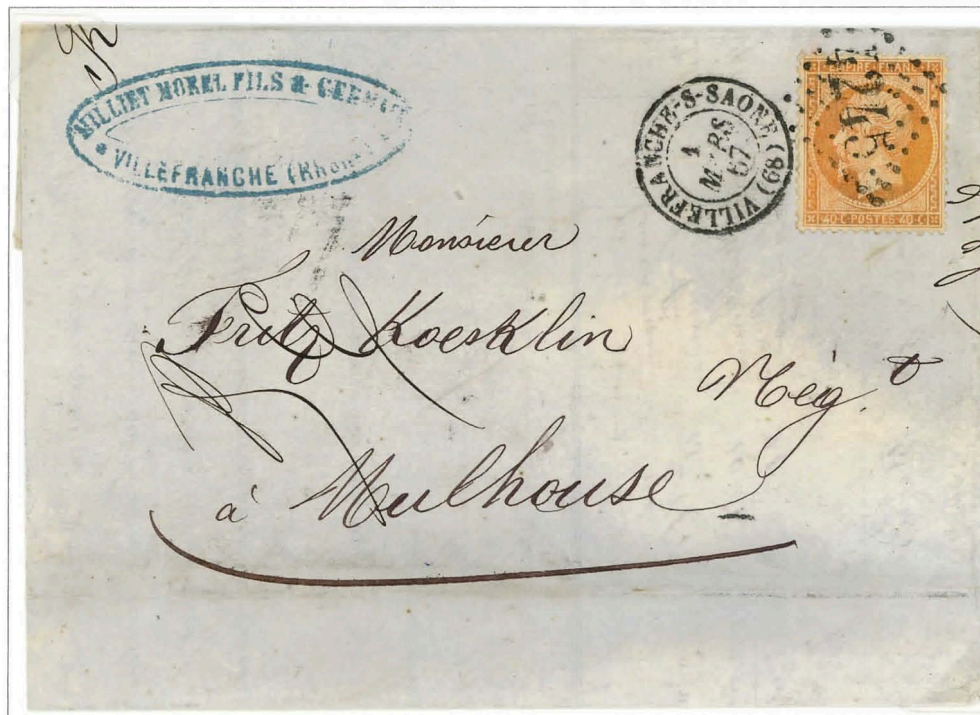 MILLIET MOREL FILS &
VILLEFRANCHE (Rhône)
VILLEFRANCHE-S-SAONE (68)
1
MARS
67
EMPIRE FRANC
40 C POSTES 40 C
Monsieur
Fritz Koecklin
Nég.t
à Mulhouse